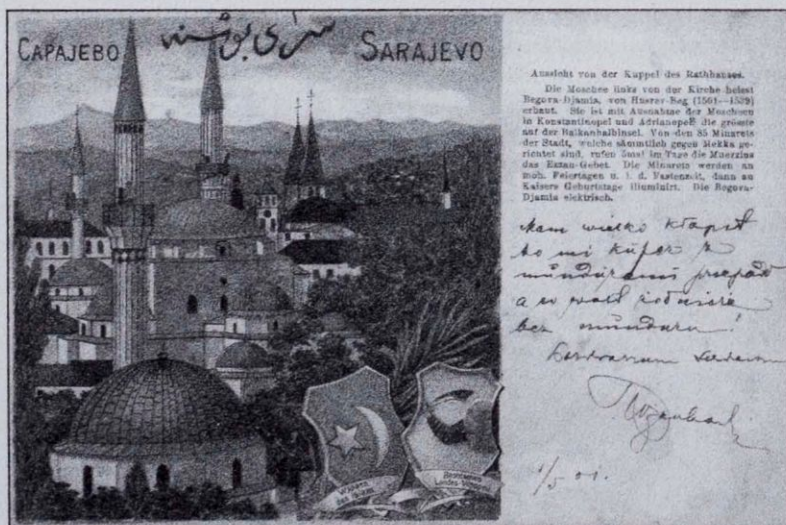 САРАЈЕВО سرای بوسنه SARAJEVO
Aussicht von der Kuppel des Rathhauses.
Die Moschee links von der Kirche heisst
Begova-Djamia, von Husrev-Beg (1501—1539)
erbaut. Sie ist mit Ausnahme der Moscheen
in Konstantinopel und Adrianopel die grösste
auf der Balkanhalbinsel. Von den 85 Minarets
der Stadt, welche sämmtlich gegen Mekka ge-
richtet sind, rufen 5mal im Tage die Muezzins
das Ezzan-Gebet. Die Minarets werden an
moh. Feiertagen u. i. d. Fastenzeit, dann zu
Kaisers Geburtstage illuminirt. Die Begova-
Djamia elektrisch.
Mam wielki kłopot
bo mi kufer z
mundurami przepadł
a w
bez munduru!
1/5 01.
Wappen
Landes-